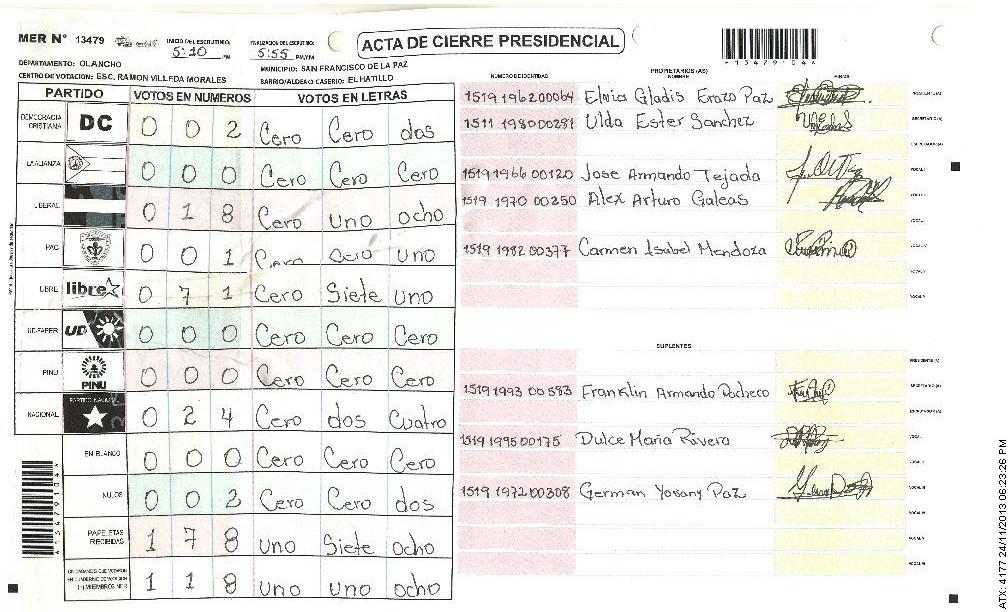 MER N° 13479
INICIO DEL ESCRUTINIO: 5:10 PM
FINALIZACION DEL ESCRUTINIO: 5:55 PM/YM
ACTA DE CIERRE PRESIDENCIAL
*13479104*
DEPARTAMENTO: OLANCHO
MUNICIPIO: SAN FRANCISCO DE LA PAZ
CENTRO DE VOTACION: ESC. RAMON VILLEDA MORALES
BARRIO/ALDEA O CASERIO: EL HATILLO
PARTIDO VOTOS EN NUMEROS VOTOS EN LETRAS
DEMOCRACIA CRISTIANA DC 0 0 2 Cero Cero dos
LA ALIANZA 0 0 0 Cero Cero Cero
LIBERAL 0 1 8 Cero uno ocho
PAC 0 0 1 Cero Cero uno
LIBRE libre 0 7 1 Cero Siete uno
UD-FAPER UD 0 0 0 Cero Cero Cero
PINU PINU 0 0 0 Cero Cero Cero
NACIONAL PARTIDO NACIONAL 0 2 4 Cero dos Cuatro
EN BLANCO 0 0 0 Cero Cero Cero
NULOS 0 0 2 Cero Cero dos
PAPELETAS RECIBIDAS 1 7 8 uno Siete ocho
CIUDADANOS QUE VOTARON EN CUADERNO DE VOTACION (+) MIEMBROS MER 1 1 8 uno uno ocho
*13479104*
PROPIETARIOS (AS)
NUMERO DE IDENTIDAD NOMBRE FIRMAS
1519 1962 00064 Elvia Gladis Erazo Paz PRESIDENTE(A)
1511 1980 00281 Ulda Ester Sanchez SECRETARIO (A)
ESCRUTADOR (A)
1519 1966 00120 Jose Armando Tejada VOCAL I
1519 1970 00250 Alex Arturo Galeas VOCAL II
VOCAL III
1519 1982 00377 Carmen Isabel Mendoza VOCAL IV
VOCAL V
VOCAL VI
SUPLENTES
PRESIDENTE (A)
1519 1993 00583 Franklin Armando Pacheco SECRETARIO (A)
ESCRUTADOR (A)
1519 1995 00175 Dulce Maria Rivera VOCAL I
VOCAL II
1519 1972 00308 German Yovany Paz VOCAL III
VOCAL IV
VOCAL V
VOCAL VI
ATX: 4177 24/11/2013 06:23:26 PM